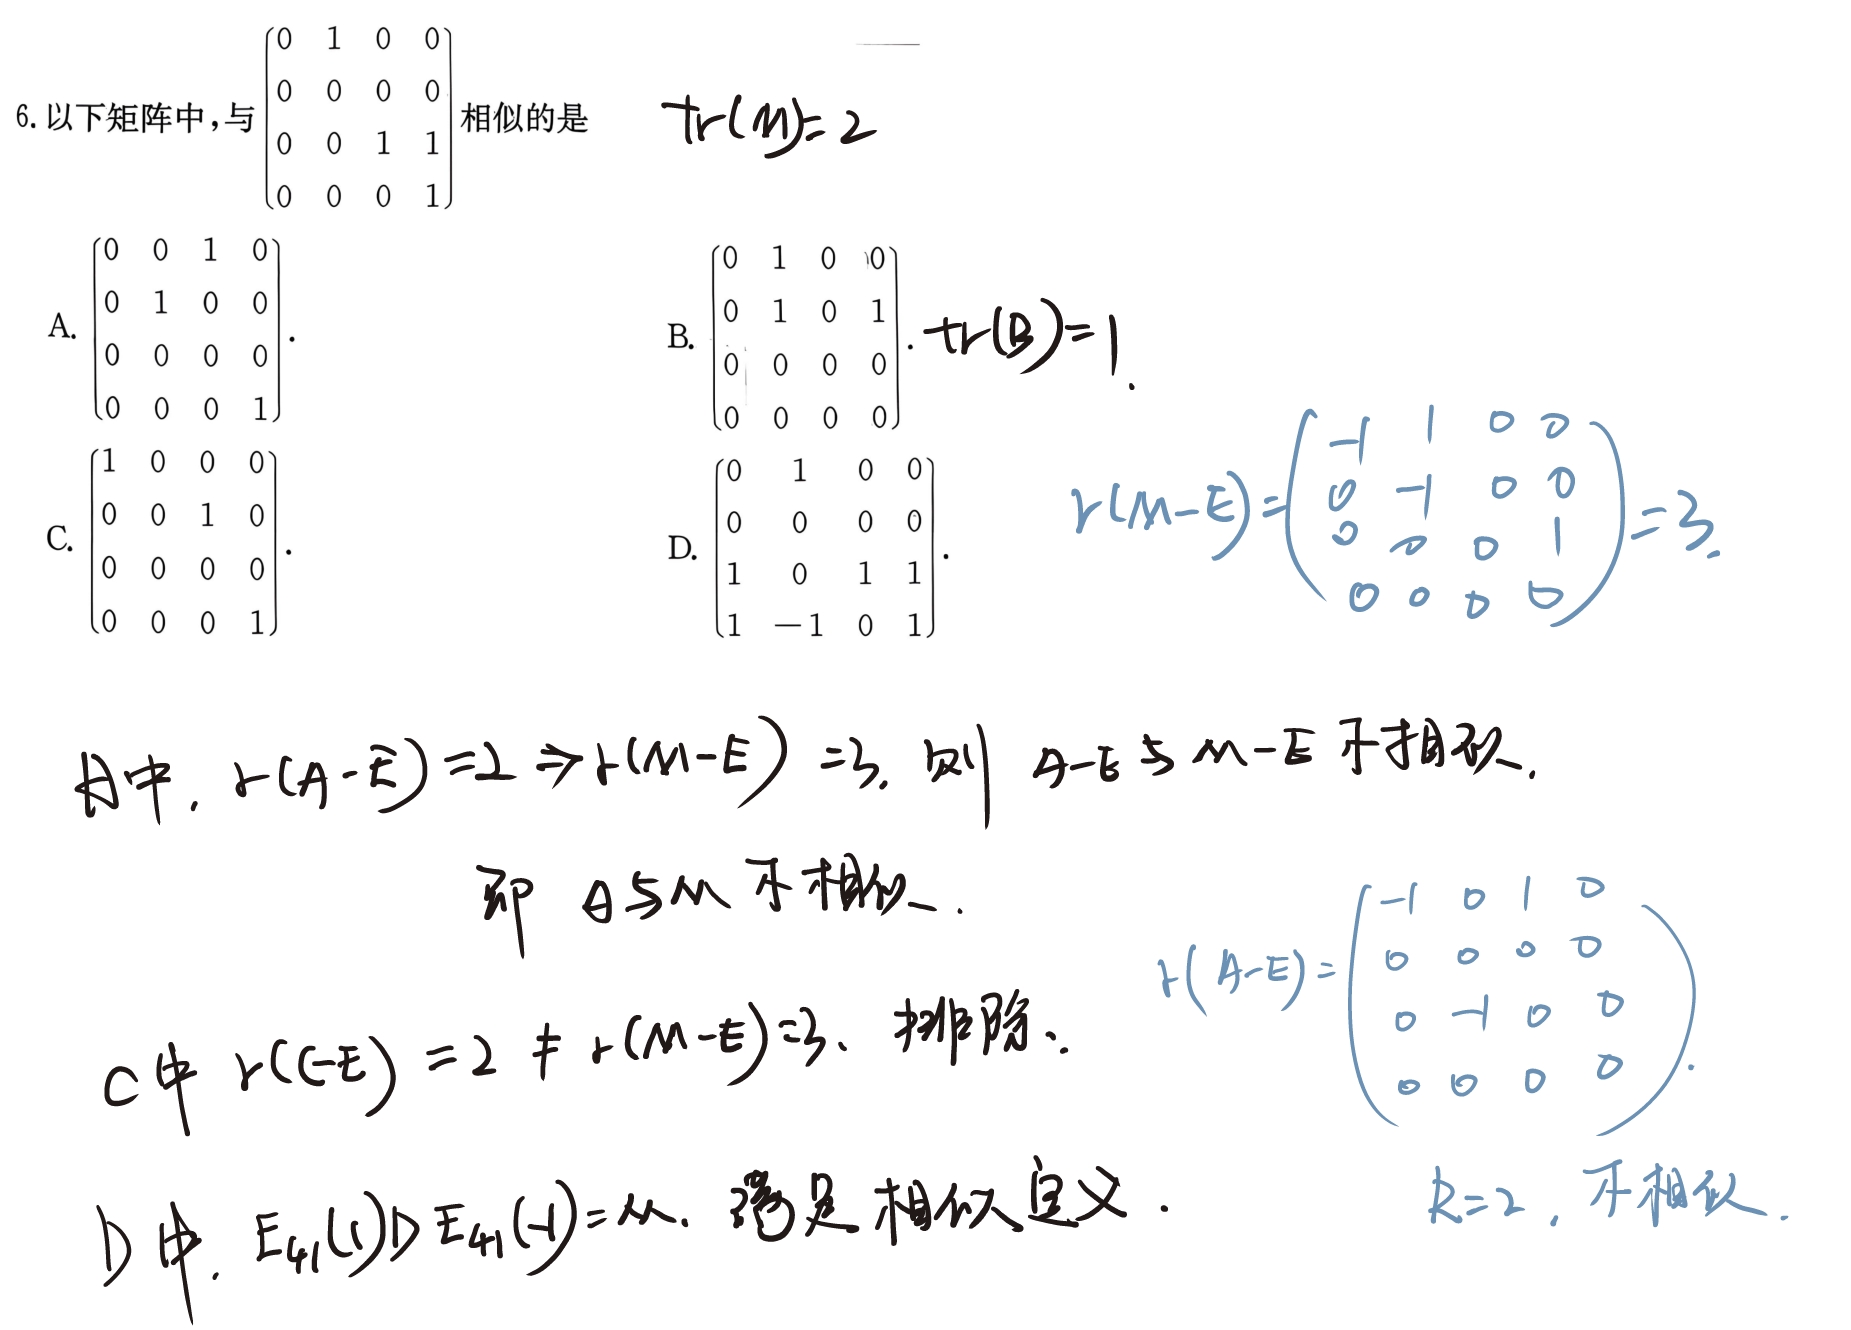 6. 以下矩阵中,与
0 1 0 0
0 0 0 0
0 0 1 1
0 0 0 1
相似的是
tr(M)=2
A.
0 0 1 0
0 1 0 0
0 0 0 0
0 0 0 1
.
B.
0 1 0 0
0 1 0 1
0 0 0 0
0 0 0 0
. tr(B)=1.
C.
1 0 0 0
0 0 1 0
0 0 0 0
0 0 0 1
.
D.
0 1 0 0
0 0 0 0
1 0 1 1
1 -1 0 1
.
r(M-E)=
-1 1 0 0
0 -1 0 0
0 0 0 1
0 0 0 0
=3.
A中. r(A-E)=2 ⇒ r(M-E)=3. 则 A-E与M-E 不相似.
即 A与M 不相似.
r(A-E)=
-1 0 1 0
0 0 0 0
0 -1 0 0
0 0 0 0
.
R=2, 不相似.
C中 r(C-E)=2 ≠ r(M-E)=3、排除.
D中. E41(1)D E41(-1)=M. 满足相似定义.